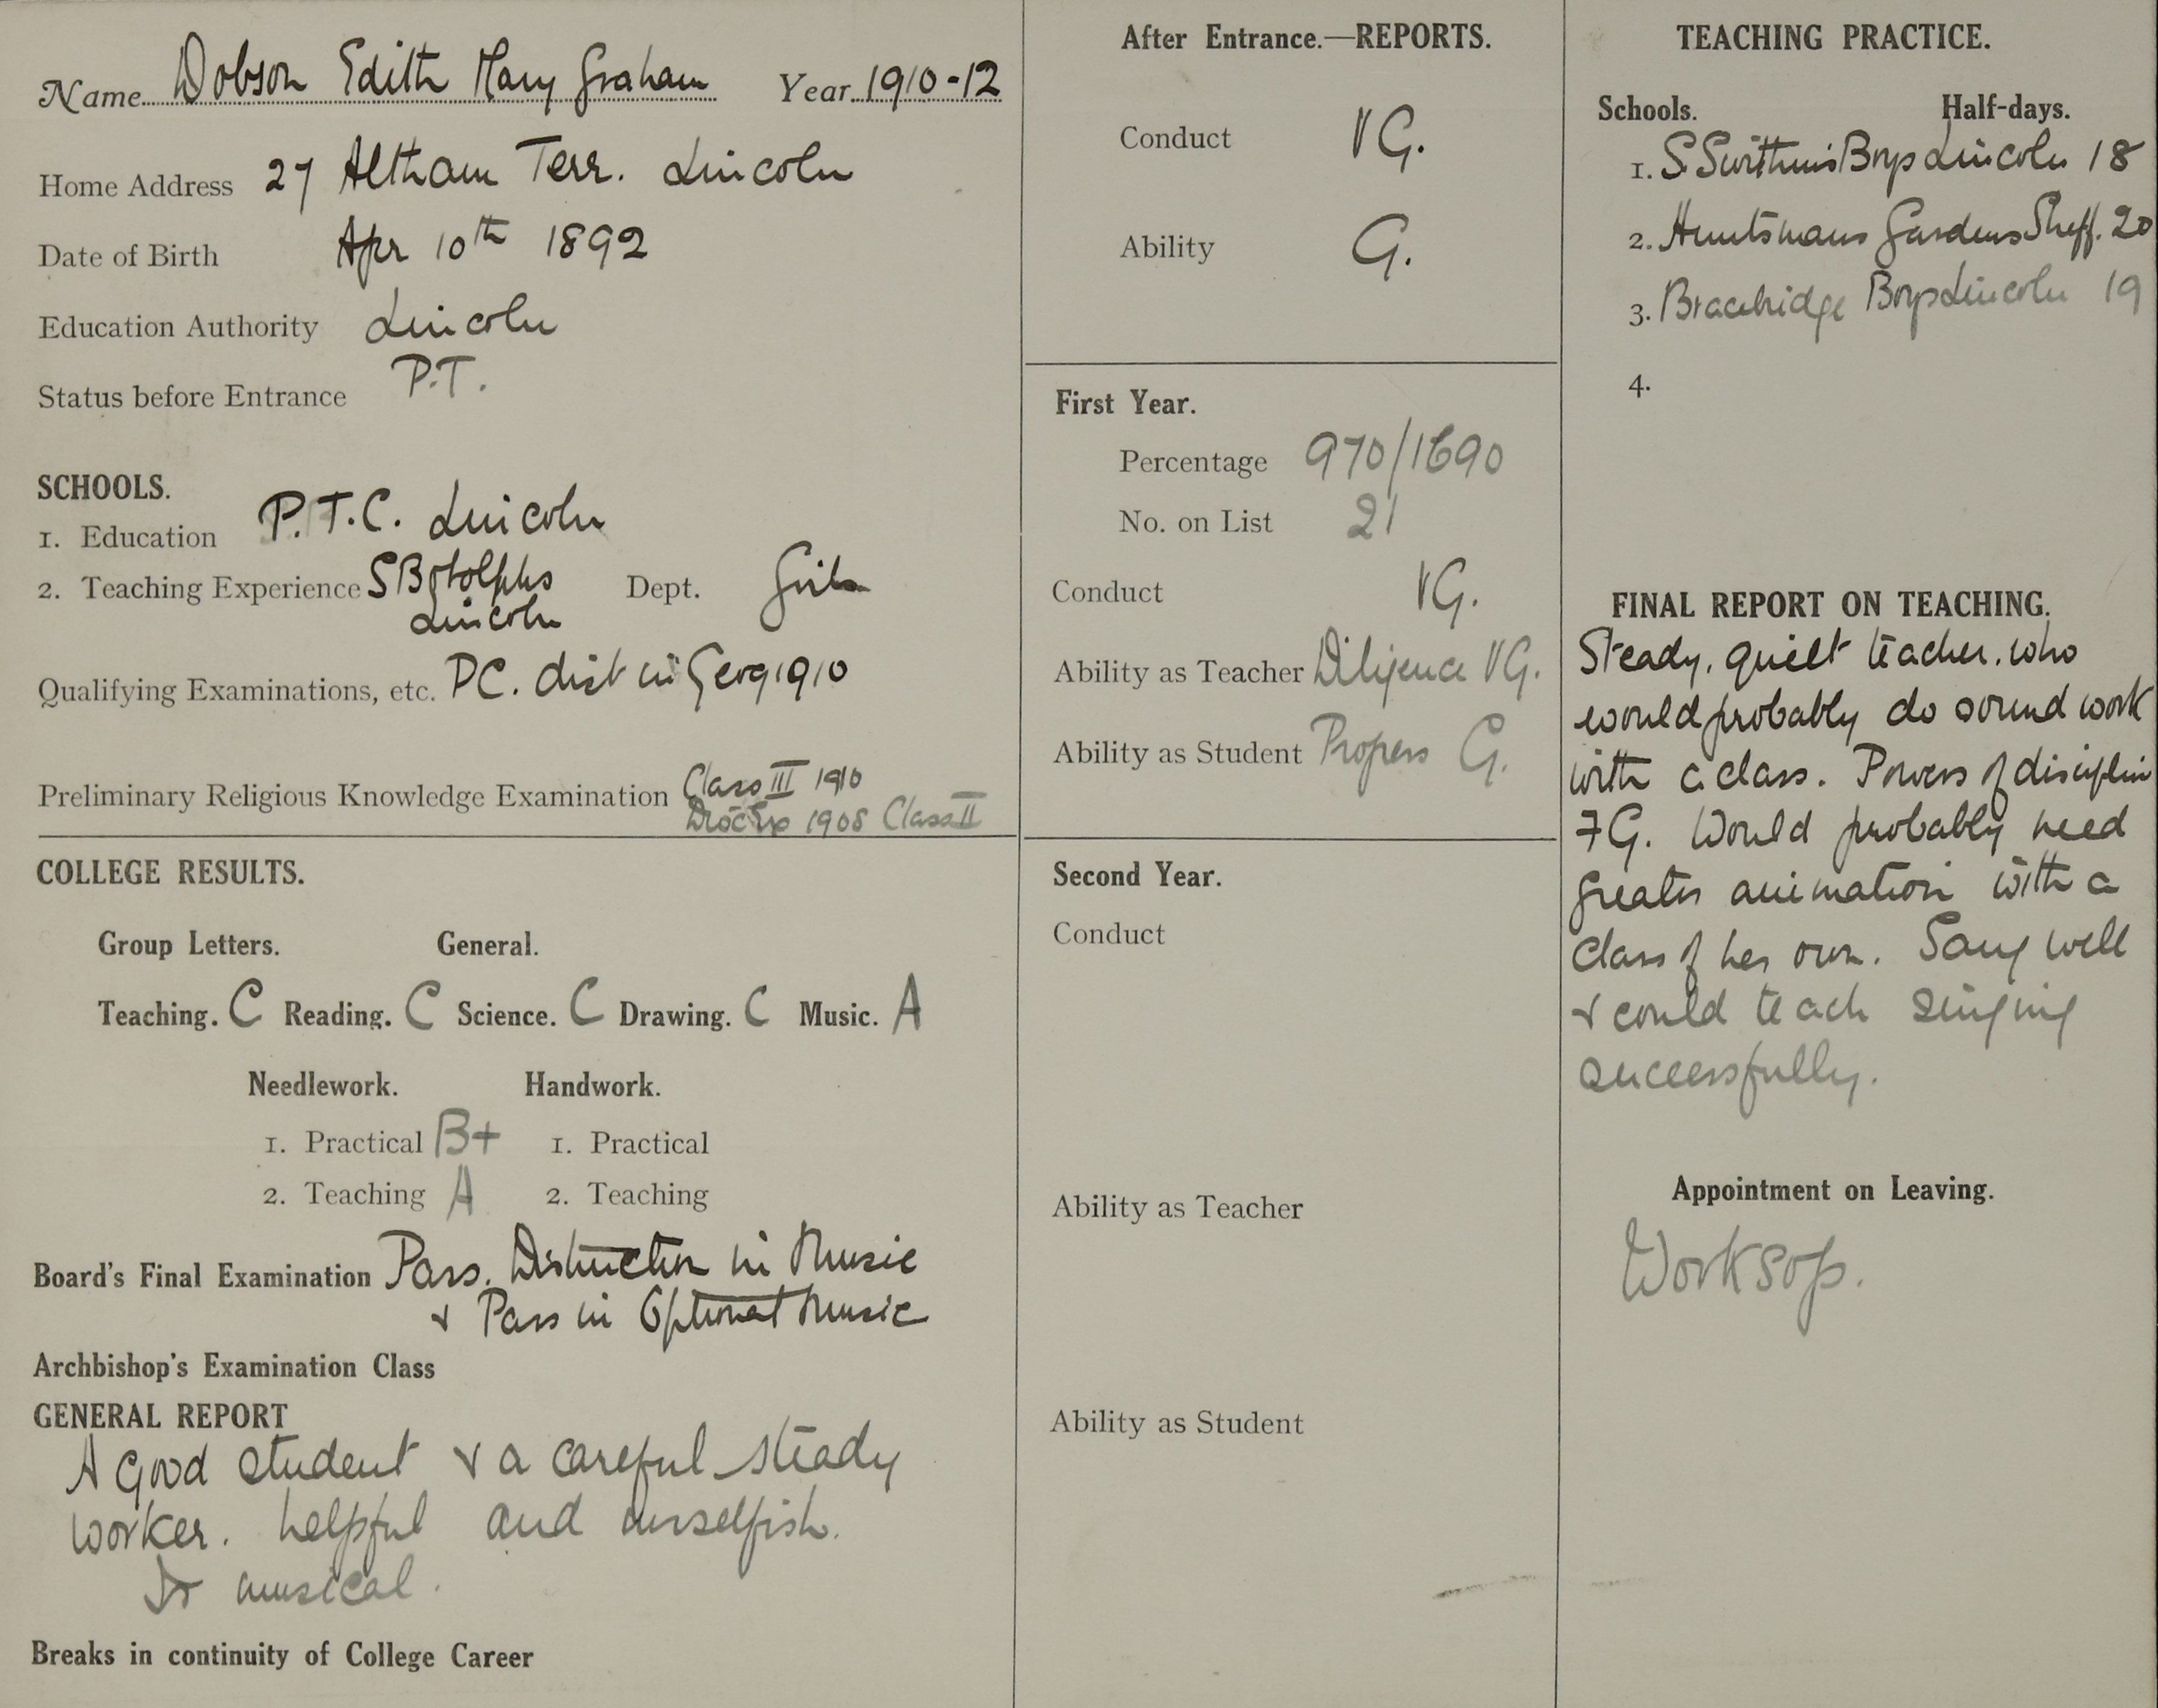 Name Dobson Edith Mary Graham Year 1910-12
Home Address 27 Altham Terr. Lincoln
Date of Birth Apr 10th 1892
Education Authority Lincoln
Status before Entrance P.T.
SCHOOLS.
1. Education P.T.C. Lincoln
2. Teaching Experience S Botolphs Dept. Girls
Lincoln
Qualifying Examinations, etc. PC. dist in Geog 1910
Preliminary Religious Knowledge Examination Class III 1910
1908 Class II
COLLEGE RESULTS.
Group Letters. General.
Teaching. C Reading. C Science. C Drawing. C Music. A
Needlework. Handwork.
1. Practical B+ 1. Practical
2. Teaching A 2. Teaching
Board's Final Examination Pass. Distinction in Music
& Pass in Optional Music
Archbishop's Examination Class
GENERAL REPORT
A good student & a careful steady
worker. helpful and unselfish.
Is musical.
Breaks in continuity of College Career
After Entrance.—REPORTS.
Conduct VG.
Ability G.
First Year.
Percentage 970/1690
No. on List 21
Conduct VG.
Ability as Teacher Diligence VG.
Ability as Student Progress G.
Second Year.
Conduct
Ability as Teacher
Ability as Student
TEACHING PRACTICE.
Schools. Half-days.
1. S. Swithins Boys Lincoln 18
2. Huntsmans Gardens Sheff. 20
3. Bracebridge Boys Lincoln 19
4.
FINAL REPORT ON TEACHING.
Steady, quiet teacher, who
would probably do sound work
with a class. Powers of disciplin
FG. Would probably need
greater animation with a
class of her own. Sang well
& could teach singing
successfully.
Appointment on Leaving.
Worksop.